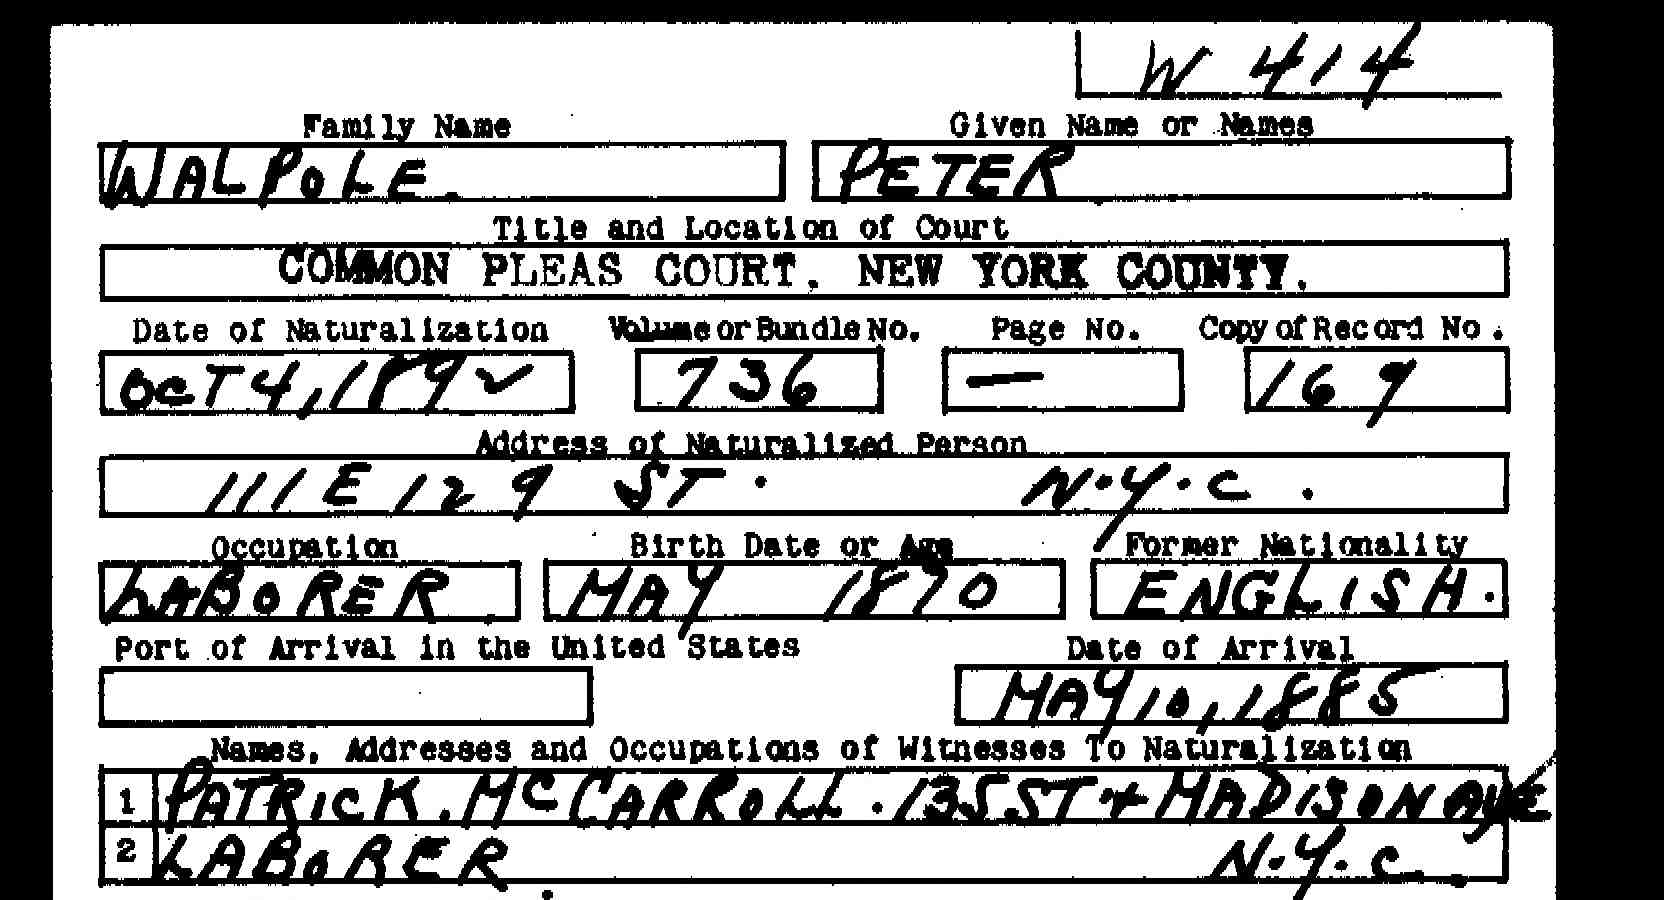 W 414
Family Name Given Name or Names
WALPOLE. PETER
Title and Location of Court
COMMON PLEAS COURT. NEW YORK COUNTY.
Date of Naturalization Volume or Bundle No. Page No. Copy of Record No.
OCT 4, 1892 736 — 169
Address of Naturalized Person
111 E 129 ST. N.Y.C.
Occupation Birth Date or Age Former Nationality
LABORER. MAY 1870 ENGLISH.
Port of Arrival in the United States Date of Arrival
MAY 10, 1885
Names, Addresses and Occupations of Witnesses To Naturalization
1 PATRICK. MCCARROLL. 135 ST + MADISON AVE
2 LABORER. N.Y.C.